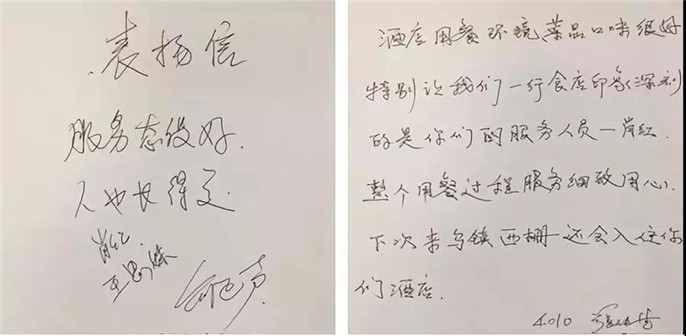 表扬信
服务态度好.
人也长得美.
肖红.
酒店用餐环境菜品口味很好
特别让我们一行食店印象深刻
的是你们的服务人员—肖红.
整个用餐过程服务细致用心.
下次来乌镇西栅还会入住你
们酒店.
4010